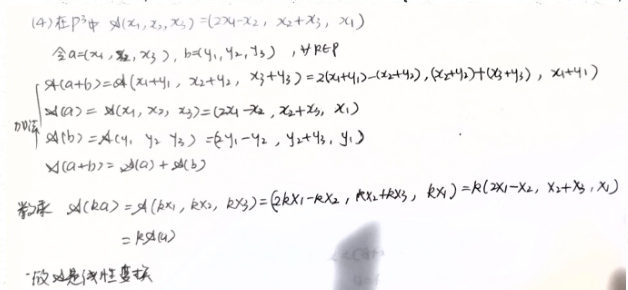 (4)在P³中 𝒜(x₁,x₂,x₃)=(2x₁-x₂, x₂+x₃, x₁)
令a=(x₁,x₂,x₃), b=(y₁,y₂,y₃), ∀k∈P
𝒜(a+b)=𝒜(x₁+y₁, x₂+y₂, x₃+y₃)=2(x₁+y₁)-(x₂+y₂),(x₂+y₂)+(x₃+y₃), x₁+y₁)
𝒜(a)=𝒜(x₁, x₂, x₃)=(2x₁-x₂, x₂+x₃, x₁)
加法 𝒜(b)=𝒜(y₁ y₂ y₃)=(2y₁-y₂, y₂+y₃, y₁)
𝒜(a+b)=𝒜(a)+𝒜(b)
数乘 𝒜(ka)=𝒜(kx₁, kx₂, kx₃)=(2kx₁-kx₂, kx₂+kx₃, kx₁)=k(2x₁-x₂, x₂+x₃, x₁)
=k𝒜(a)
故𝒜是线性变换